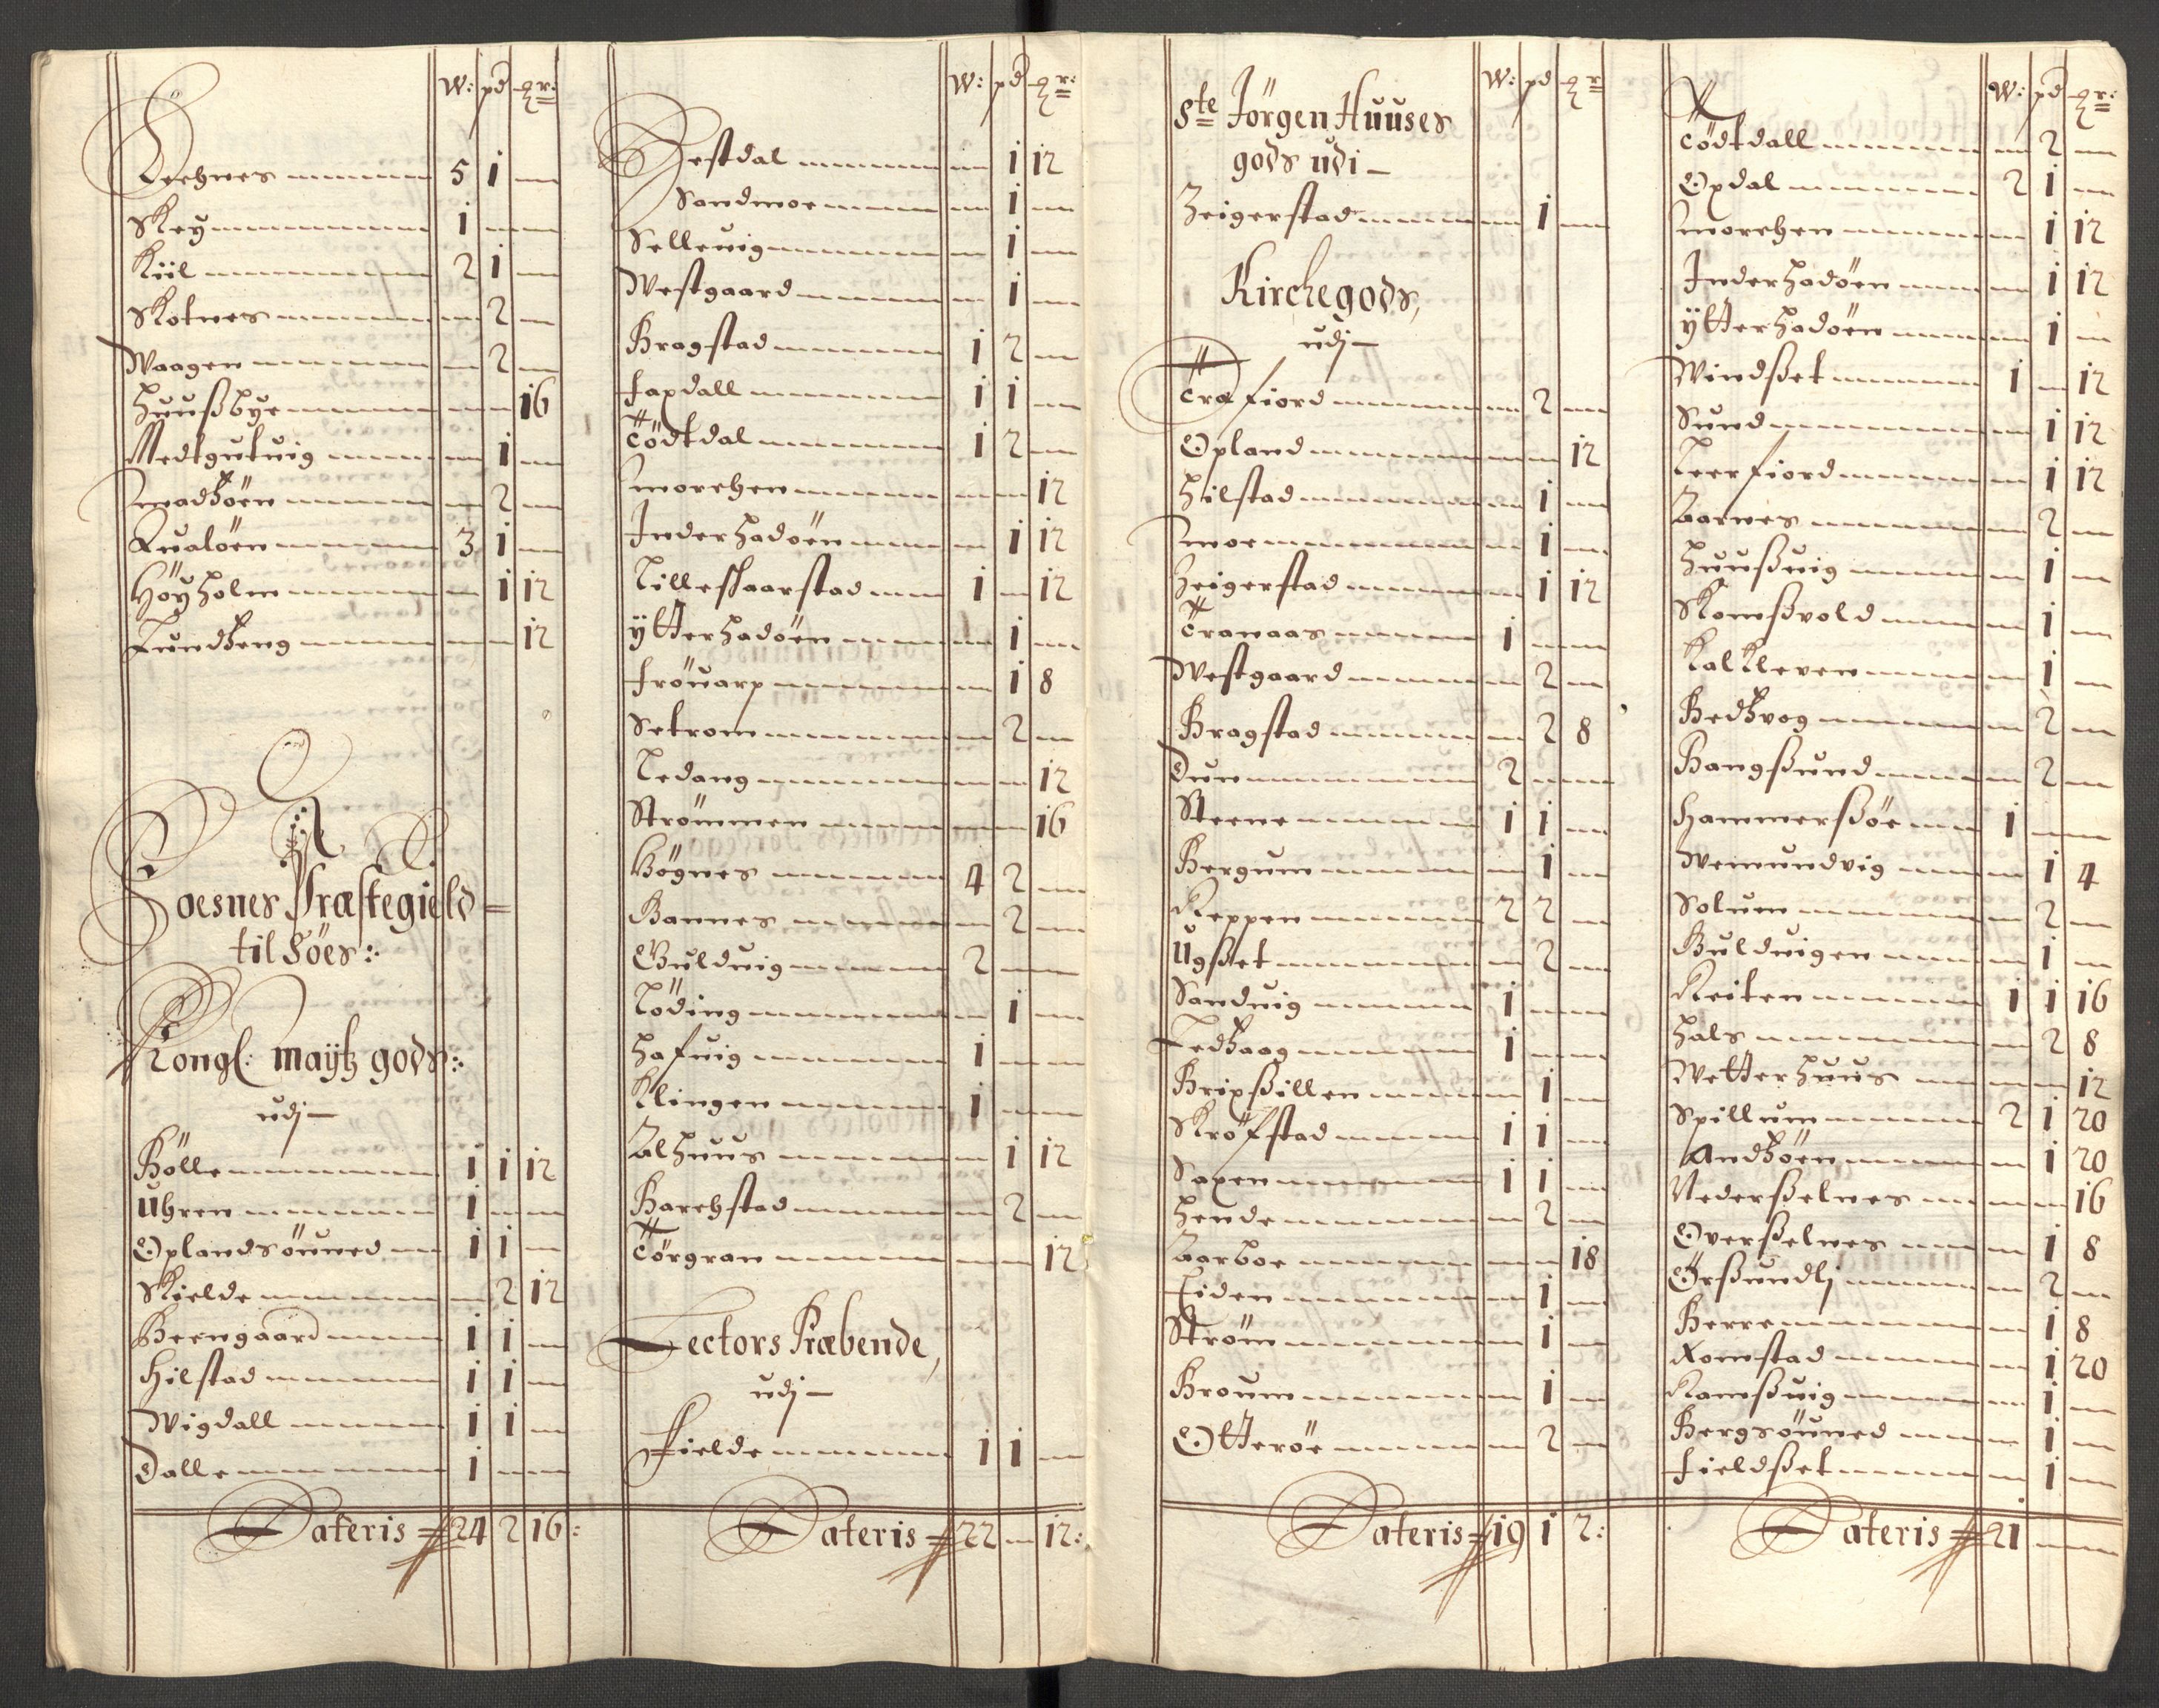 W: pd ʒr:
Leehnes 5 1 —
Skey 1 — —
Kiil 2 1 —
Skotnes — 2 —
Waagen — 2 —
Huußbye — — 16
Medtgutvig — 1 —
Madhöen — 2 —
Qualöen 3 1 —
Höyholm — 1 12
Lundheng — — 12
Foesnes Præstegield
til Söes:
Kongl: maytz gods:
udj —
Bölle 1 1 12
Uhren 1 — —
Oplandsöuned 1 1 —
Skielde — 2 12
Beengaard 1 1 —
Hilstad 1 1 —
Wigdall 1 1 —
Dalle 1 — —
Lateris 24 2 16:
W: pd ʒr:
Sestdal — 1 12
Sandmoe — 1 —
Selleuig — 1 —
Westgaard — 1 —
Bragstad 1 2 —
Faxdall 1 1 —
Tödtdal 1 2 —
Morchen — — 12
Inderhadöen — 1 12
Lilleskaarstad 1 — 12
Ytterhadöen — 1 —
Fröuarp — 1 8
Setrom — 2 —
Ledang — — 12
Strömmen — — 16
Högnes 4 2 —
Bannes — 2 —
Gulduig 2 — —
Löding — 1 —
Hafuig 1 — —
Klingen 1 — —
Alhuus — 1 12
Barchstad — 2 —
Törgran — — 12
Lectors Præbende,
udj —
Fielde 1 1 —
Lateris 22 — 12:
W: pd ʒr
Ste Jörgen Huuses
gods udi —
Zeigerstad — 1 —
Kirchegods,
udj —
Træfiord — 2 —
Opland — — 12
Hilstad — 1 —
Moe — 1 —
Zeigerstad — 1 12
Tranaas 1 — —
Westgaard — 2 —
Bragstad — 2 8
Dun 2 — —
Steene 1 1 —
Bergum — 1 —
Reppen 2 2 —
Ugßet — 2 —
Sanduig 1 — —
Fedhaag 1 — —
Bripßillen — 1 —
Kröfstad 1 1 —
Saxen 1 1 —
Hende — 2 —
Aarboe — — 18
Eiden — 1 —
Ström — 1 —
Broum — 1 —
Otteröe — 2 —
Lateris 19 1 2:
W: pd ʒr:
Tödtdall — 2 —
Opdal 2 1 —
Morchen — 1 12
Inderhadöen — 1 12
Ytterhadöen — 1 —
Windßet 1 — 12
Sund — 1 12
Leerfiord — 1 12
Aarnes — 2 —
Huußuig — 1 —
Komßvold — 1 —
Kalkleven — 1 —
Bedhvog — 2 —
Bangßund — 2 —
Hammerßöe 1 — —
Wemundvig — 1 4
Solum — 2 —
Gulduigen — 1 —
Reiten 1 1 16
Hals — 2 8
Wetterhuus — — 12
Spillum 2 1 20
Andhöen — 1 20
Nederßelnes — — 16
Overßelnes — 1 8
Örßundlj — 2 —
Berre — 1 8
Romstad — 1 20
Ramßuig — 1 —
Bergsöuned — 1 —
Fieldßet — 1 —
Lateris 21 — —